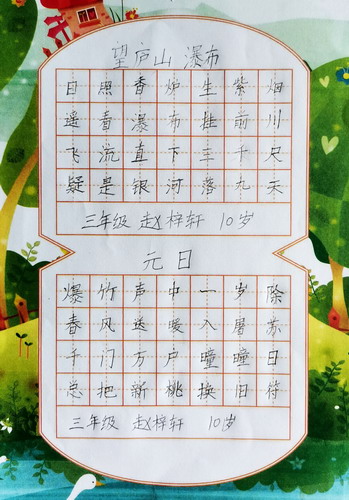 望庐山 瀑布
日照香炉生紫烟
遥看瀑布挂前川
飞流直下三千尺
疑是银河落九天
三年级 赵梓轩 10岁
元日
爆竹声中一岁除
春风送暖入屠苏
千门万户曈曈日
总把新桃换旧符
三年级 赵梓轩 10岁